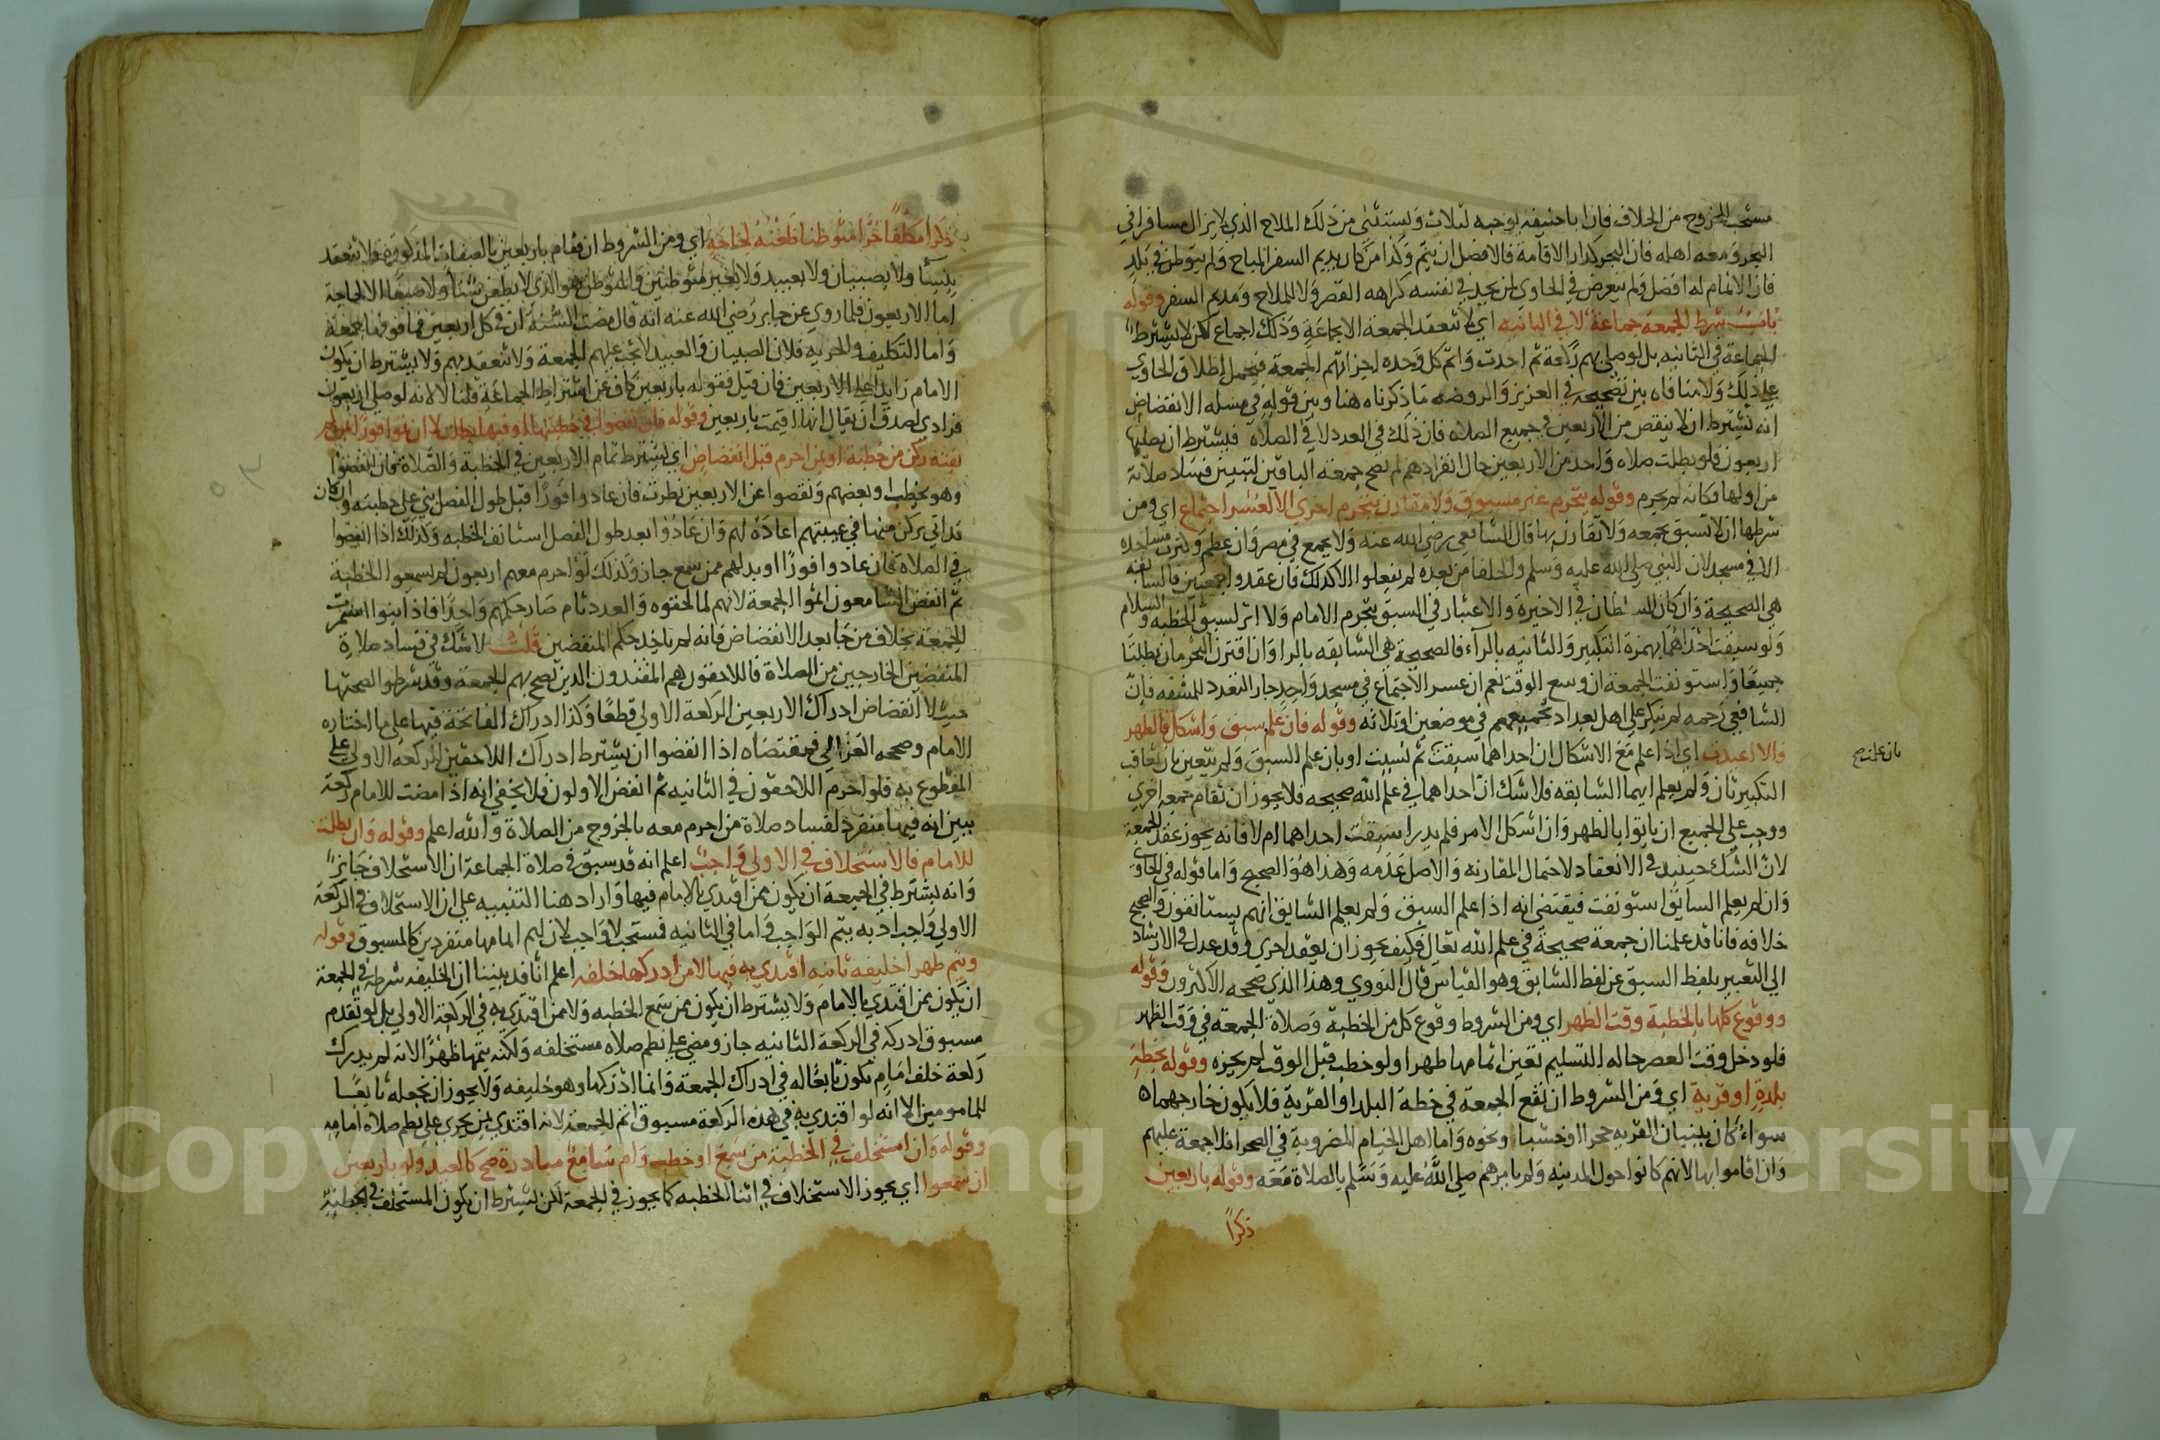 مستحب للخروج من الخلاف فان اباحنيفه يوجبه لثلاث ويستثنى من ذلك الملاح الذي لا يزال مسافرا في
البحر ومعه اهله فان البحر كدار الاقامة فالافضل ان يتم وكذا من كان يديم السفر المباح ولم يتوطن في بلد
فان الاتمام له افضل ولم يتعرض في الحاوي لمن يجد في نفسه كراهه القصر ولا للملاح ومديم السفر وقوله
باب شرط الجمعة جماعة لا في الثانيه اي لا تنعقد الجمعة الا بجماعة وذلك اجماع لكن لا يشترط
الجماعة في الثانيه بل لو صلى بهم ركعة ثم احدث واتم كل وحده اجزاتهم الجمعة فيحمل اطلاق الحاوي
على ذلك ولا منافاه بين تصحيحه في العزيز والروضه ما ذكرناه هنا وبين قوله في مسله الانفضاض
انه يشترط ان لا ينقص من الاربعين في جميع الصلاه فان ذلك في العدد لا في الصلاه فيشترط ان يصليها
اربعون فلو بطلت صلاه واحد من الاربعين حال انفرادهم لم تصح جمعة الباقين لتبين فساد صلاته
من اولها فكانه لم يحرم وقوله بتحرم غير مسبوق ولا مقارن بتحرم اخرى الا لعسر اجتماع اي ومن
شرطها ان لا تسبق بجمعه ولا تقارن بها قال الشافعي رضي الله عنه ولا يجمع في مصر وان عظم وكثرت مساجده
الا في مسجد لان النبي صلى الله عليه وسلم والخلفا من بعده لم يفعلوا الا كذلك فان عقدوا جمعتين فالسابقه
هي الصحيحة وان كان السلطان في الاخيرة والاعتبار في السبق بتحرم الامام ولا اثر لسبق الخطبه والسلام
ولو سبقت احداهما بهمزة التكبير والثانيه بالراء فالصحيحة هي السابقه بالرا وان اقترن التحرمان بطلتا
جميعا واستونفت الجمعة ان وسع الوقت نعم ان عسر الاجتماع في مسجد واحد جاز التعدد للمشقه فان
الشافعي رحمه لم ينكر على اهل بغداد تجميعهم في موضعين او ثلاثه وقوله فان علم سبق واشكل فالظهر
والا اعيدت اي اذا علم مع الاشكال ان احداهما سبقت ثم نسيت او بان علم السبق ولم تتعين بان تعاقب
بان علم صح
التكبيرتان ولم يعلم ايهما السابقه فلا شك ان احداهما في علم الله صحيحه فلا يجوز ان تقام جمعه اخرى
ووجب على الجميع ان ياتوا بالظهر وان اشكل الامر فلم يدر اسبقت احداهما ام لا فانه يجوز عقد الجمعة
لان الشك حينيد في الانعقاد لاحتمال المقارنه والاصل عدمه وهذا هو الصحيح واما قوله في الحاوي
وان لم يعلم السابق استونفت فيقتضي انه اذا علم السبق ولم يعلم السابق انهم يستانفون والصحيح
خلافه فانا قد علمنا ان جمعة صحيحة في علم الله تعالى فكيف يجوز ان يعقد اخرى وقد عدل في الارشاد
الى التعبير بلفظ السبق عن لفظ السابق وهو القياس قال النووي وهذا الذي صححه الاكثرون وقوله
ووقوع كلها بالخطبة وقت الظهر اي ومن الشروط وقوع كل من الخطبة وصلاة الجمعة في وقت الظهر
فلو دخل وقت العصر حاله التسليم تعين اتمامها ظهرا ولو خطب قبل الوقت لم يجزه وقوله بخطة
بلدة او قرية اي ومن الشروط ان تقع الجمعة في خطة البلد او القرية فلا يكون خارجهما
سواء كان بنيان القريه حجرا او خشبا ونحوه واما اهل الخيام المضروبة في الصحرا فلا جمعة عليهم
وان اقاموا بها لانهم كانوا حول المدينه ولم يامرهم صلى الله عليه وسلم بالصلاة معه وقوله باربعين
ذكرا
ذكرا مكلفا حرا متوطنا ظعنه لحاجه اي ومن الشروط ان تقام باربعين بالصفات المذكوره فلا تنعقد
بنسا ولا بصبيان ولا بعبيد ولا بغير متوطنين والمتوطن هو الذي لا يظعن شتاء ولا صيفا الا لحاجة
اما الاربعون فلما روي عن جابر رضي الله عنه انه قال مضت السنة ان في كل اربعين فما فوقها جمعة
واما التكليف والحريه فلان الصبيان والعبيد لا تجب عليهم الجمعة ولا تنعقد بهم ولا يشترط ان يكون
الامام زايدا على الاربعين فان قيل فقوله باربعين كاف عن اشتراط الجماعة قلنا لا لانه لو صلى اربعون
فرادى لصدق ان يقال انها اقيمت باربعين وقوله فان نقصوا في خطبتها او فيها بطل لا ان عوا فورا لمن لم
يفته ركن من خطبة او بمن احرم قبل انفضاض اي يشترط تمام الاربعين في الخطبة والصلاة فان انفضوا
وهو يخطب او بعضهم ونقصوا عن الاربعين نظرت فان عادوا فورا قبل طول الفصل بنى على خطبته وان كان
قد اتى بركن منها في غيبتهم اعاده لهم وان عادوا بعد طول الفصل استانف الخطبه وكذلك اذا انفضوا
في الصلاة فان عادوا فورا او بدلهم ممن سمع جاز وكذلك لو احرم معهم اربعون لم يسمعوا الخطبة
ثم انفض السامعون اتموا الجمعة لانهم لما لحقوه والعدد تام صار حكمهم واحدا فاذا ابنوا استمرت
الجمعة بخلاف من جا بعد الانفضاض فانه لم ياخذ حكم المنفضين قلت لا شك في فساد صلاة
المنفضين الخارجين من الصلاة فاللاحقون هم المقتدون الذين تصح بهم الجمعة وقد شرطوا لصحتها
حيث لا انفضاض ادراك الاربعين الركعة الاولى قطعا وكذا ادراك الفاتحة فيها على ما اختاره
الامام وصححه الغزالي فمقتضاه اذا انفضوا ان يشترط ادراك اللاحقين الركعه الاولى على
المقطوع به فلو احرم اللاحقون في الثانيه ثم انفض الاولون فلا يخفى انه اذا مضت للامام ركعة
تبين انه فيها منفرد لفساد صلاة من احرم معه بالخروج من الصلاة والله اعلم وقوله وان بطلت
للامام فالاستخلاف في الاولى واجب اعلم انه قد سبق في صلاة الجماعة ان الاستخلاف جايز
وانه يشترط في الجمعة ان يكون ممن اقتدي بالامام فيها واراد هنا التنبيه على ان الاستخلاف في الركعة
الاولى واجب اذ به يتم الواجب واما في الثانيه فمستحب لا واجب لان لهم اتمامها منفردين كالمسبوق وقوله
ويتم ظهرا خليفه ثانيه اقتدي به فيها لا من ادركها خلفه اعلم انا قد بينا ان الخليفه شرطه في الجمعة
ان يكون ممن اقتدي بالامام ولا يشترط ان يكون ممن سمع الخطبه ولا ممن اقتدي به في الركعة الاولى بل لو تقدم
مسبوق ادركه في الركعة الثانيه جاز ومضى على نظم صلاه مستخلفه ولكنه يتمها ظهرا لانه لم يدرك
ركعة خلف امام تكون تابعا له في ادراك الجمعة وانما ادركها وهو خليفه ولا يجوز ان نجعله تابعا
للمامومين الا انه لو اقتدي به في هذه الركعة مسبوق اتم الجمعة لانه اقتدي بمن يجري على نظم صلاه امامه
وقوله وان استخلف في الخطبة من سمع او خطب وام سامع مبادرة صح كالعيد ولو باربعين
ان سمعوا اي يجوز الاستخلاف في اثنا الخطبه كما يجوز في الجمعة لكن يشترط ان يكون المستخلف في الخطبة
Copy King Saud University
1957